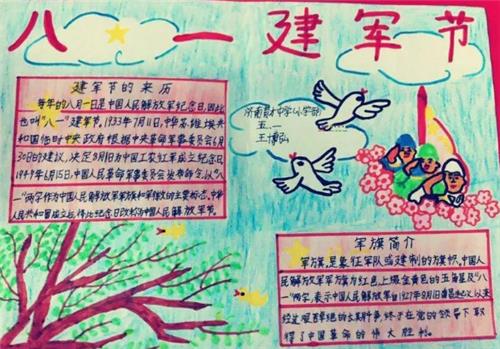 八一建军节
建军节的来历
每年的八月一日是中国人民解放军纪念日,因此
也叫“八一”建军节。1933年7月11日,中华苏维埃共
和国临时中央政府根据中央革命军事委员会6月
30日的建议,决定8月1日为中国工农红军成立纪念日。
1949年6月15日,中国人民革命军事委员会发布命令,以“八
一”两字作为中国人民解放军军旗和军徽的主要标志。中华
人民共和国成立后,将此纪念日改称为中国人民解放军建军节。
济南育才中学(小学部)
五.一
王博弘
军旗简介
军旗,是象征军队或建制的方旗帜,中国人
民解放军军旗为红色,上缀金黄色的五角星及“八
一”两字,表示中国人民解放军自1927年8月1日南昌起义以来
经过艰苦卓绝的长期斗争,终于在党的领导下取
得了中国革命的伟大胜利。